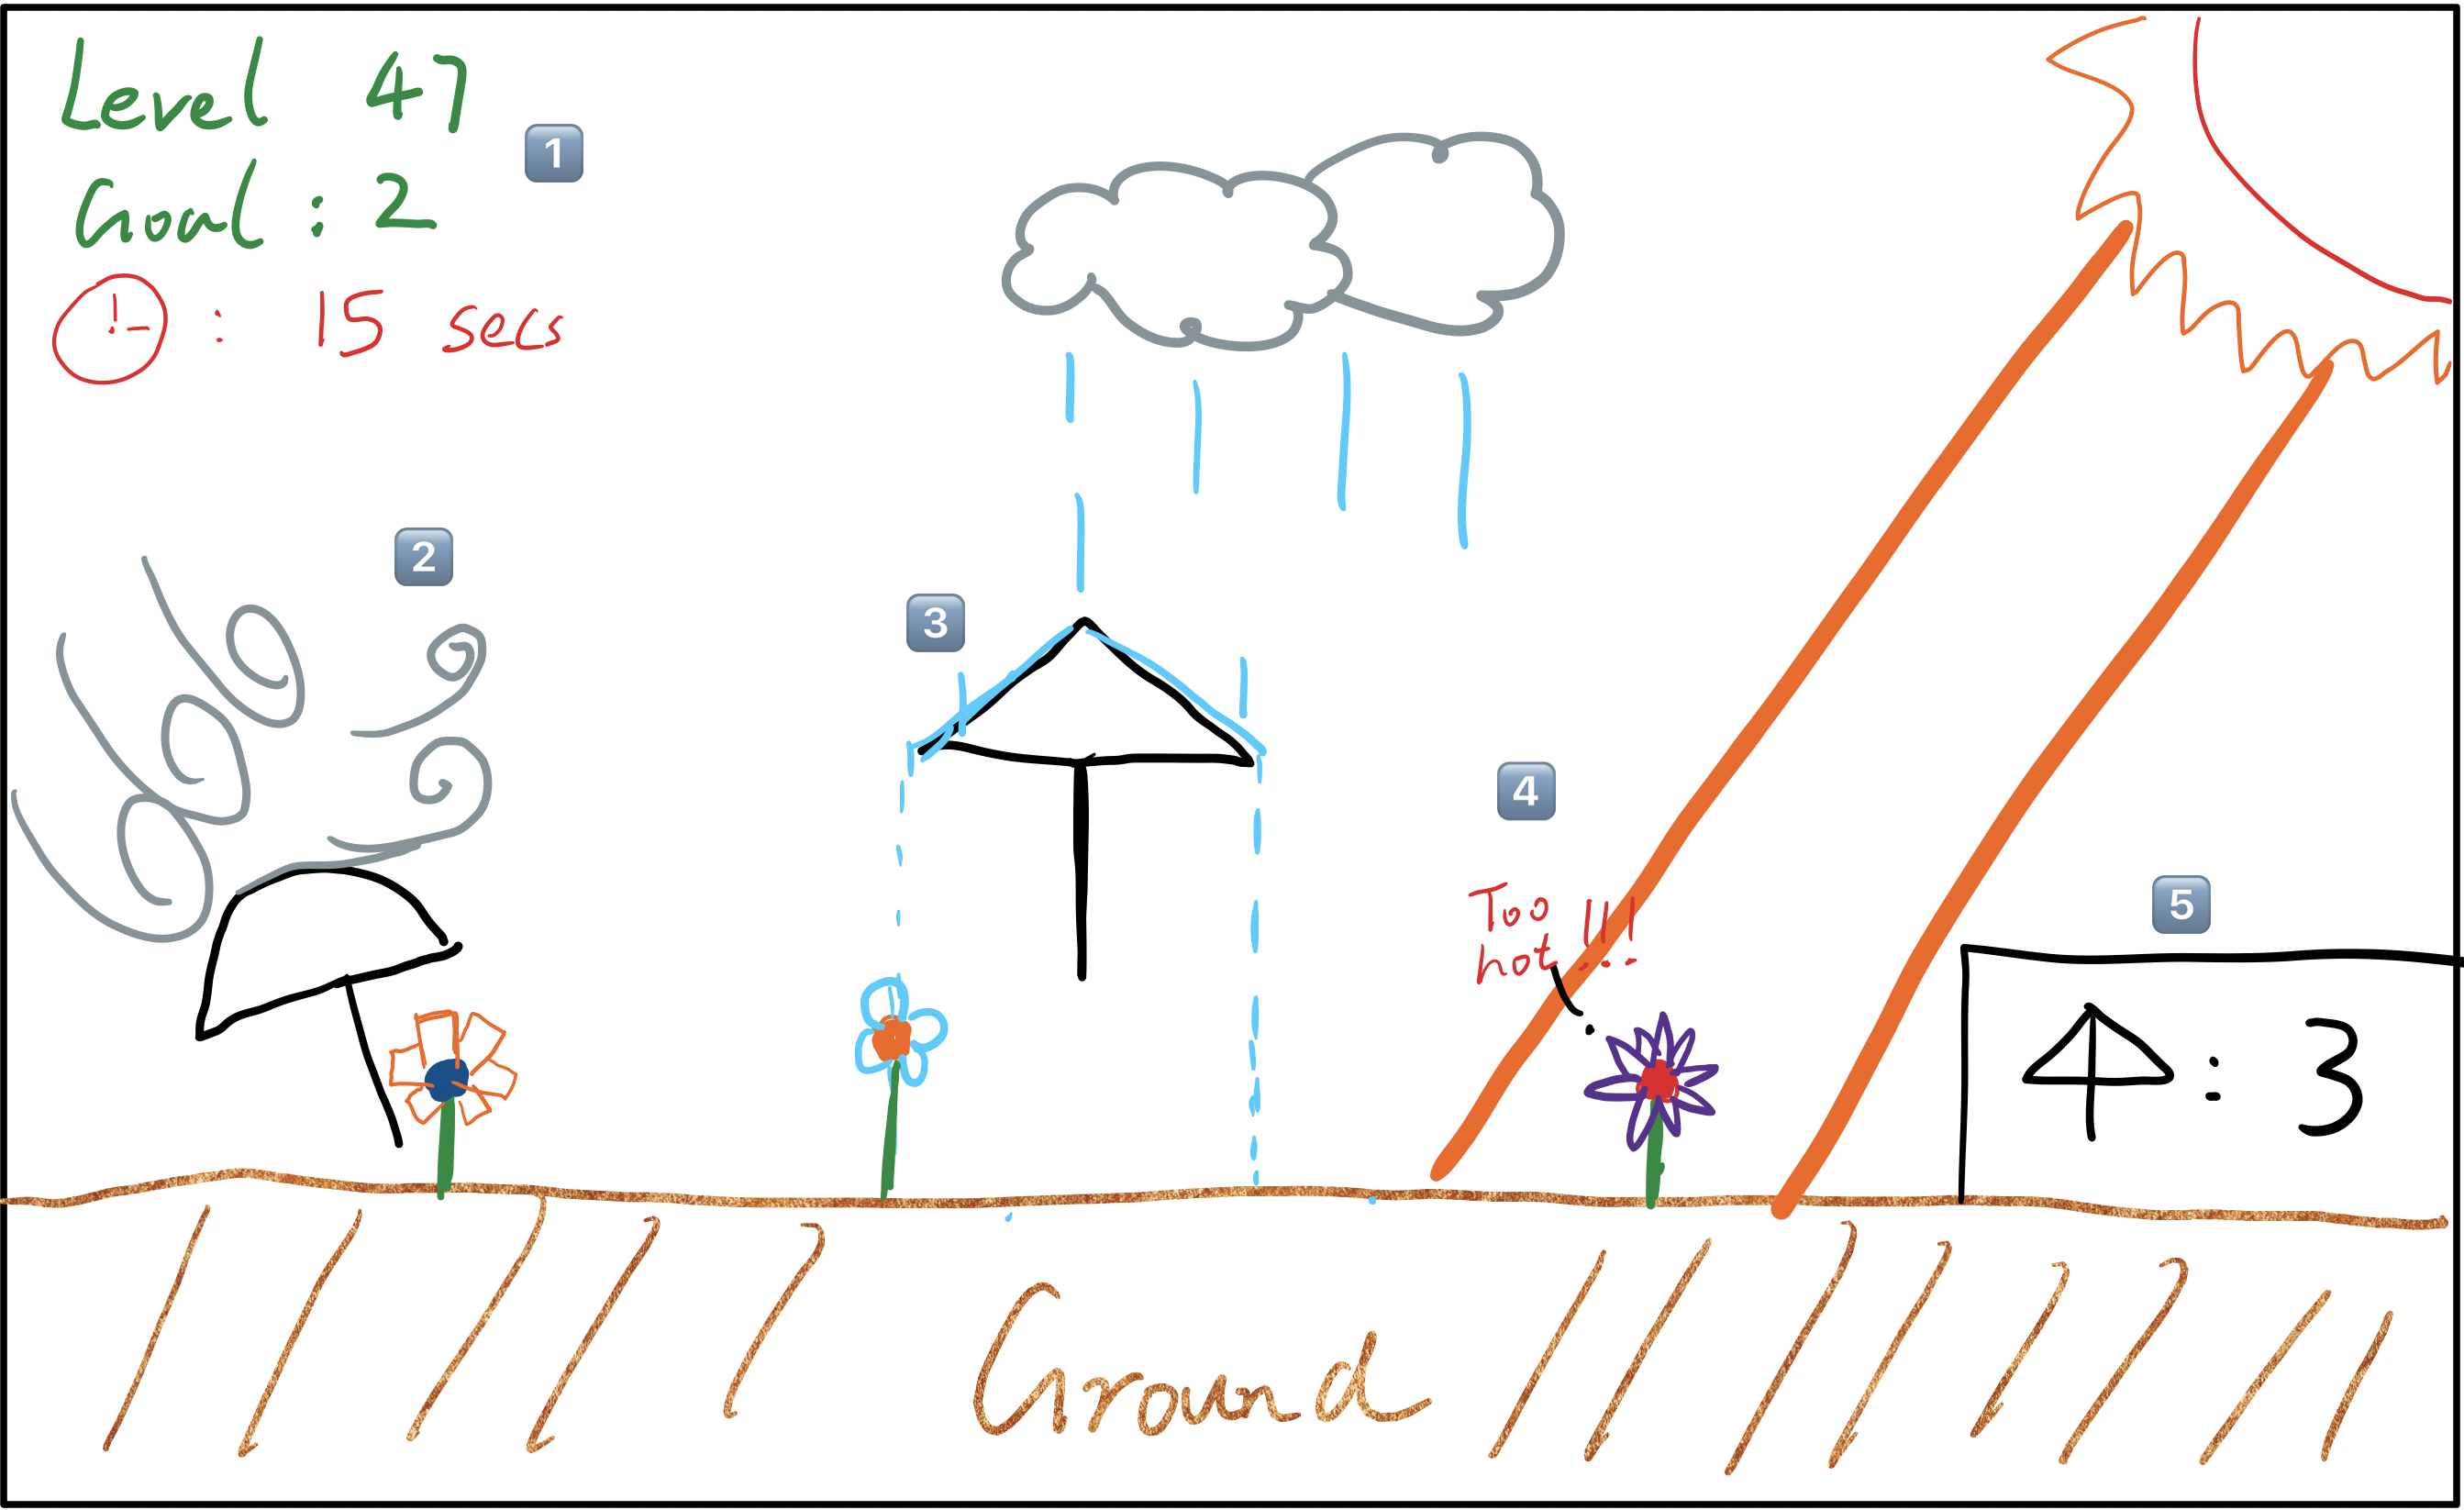 Level 47
1
Goal : 2
: 15 secs
2
3
4
Too
hot !!!
5
: 3
Ground